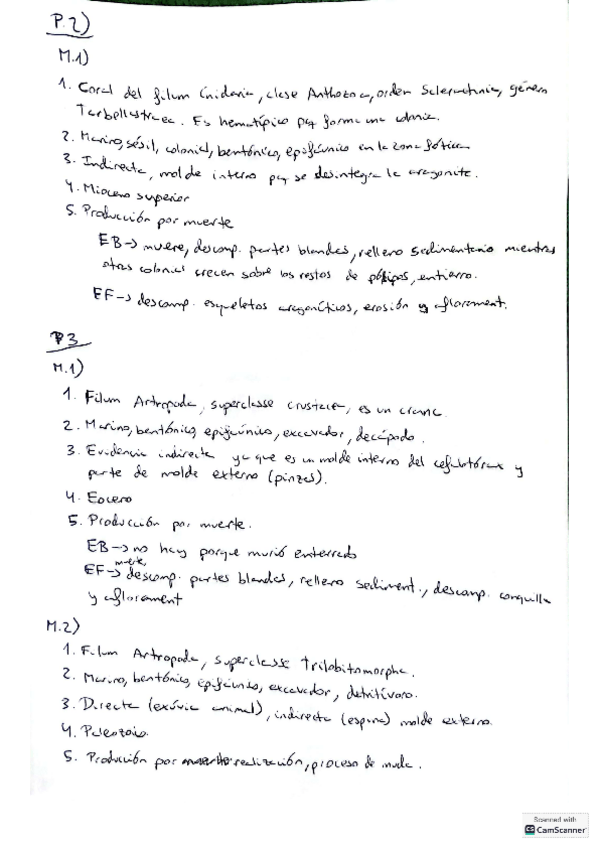 P.2)
M.1)
1. Coral del filum Cnidaria, clase Anthozoa, orden Scleractinia, género
Tarbellastraea. Es hematípico pq forma una colonia.
2. Marino, sésil, colonial, bentónico, epifaúnico en la zona fótica
3. Indirecta, molde interno pq se desintegra la aragonite.
4. Mioceno superior
5. Producción por muerte
EB -> muere, descomp. partes blandas, relleno sedimentario mientras
otras colonias crecen sobre los restos de pólipos, entierro.
EF -> descomp. esqueletos aragoníticos, erosión y aflorament.
P3
M.1)
1. Filum Artropoda, superclasse crustacea, es un
2. Marino, bentónico, epifaúnico, excavador, decápodo.
3. Evidencia indirecta ya que es un molde interno del cefalotórax y
parte de molde externo (pinzas).
4. Eoceno
5. Producción por muerte.
EB -> no hay porque murió enterrado
muerte,
EF -> descomp. partes blandas, relleno sediment., descomp. conquilla
y aflorament
M.2)
1. Filum Artropoda, superclasse Trilobitomorpha.
2. Marino, bentónico, epifaúnico, excavador, detritívoro.
3. Directa (exúvia animal), indirecta (espina) molde externo.
4. Paleozoico.
5. Producción por realización, proceso de muda.
Scanned with
CamScanner